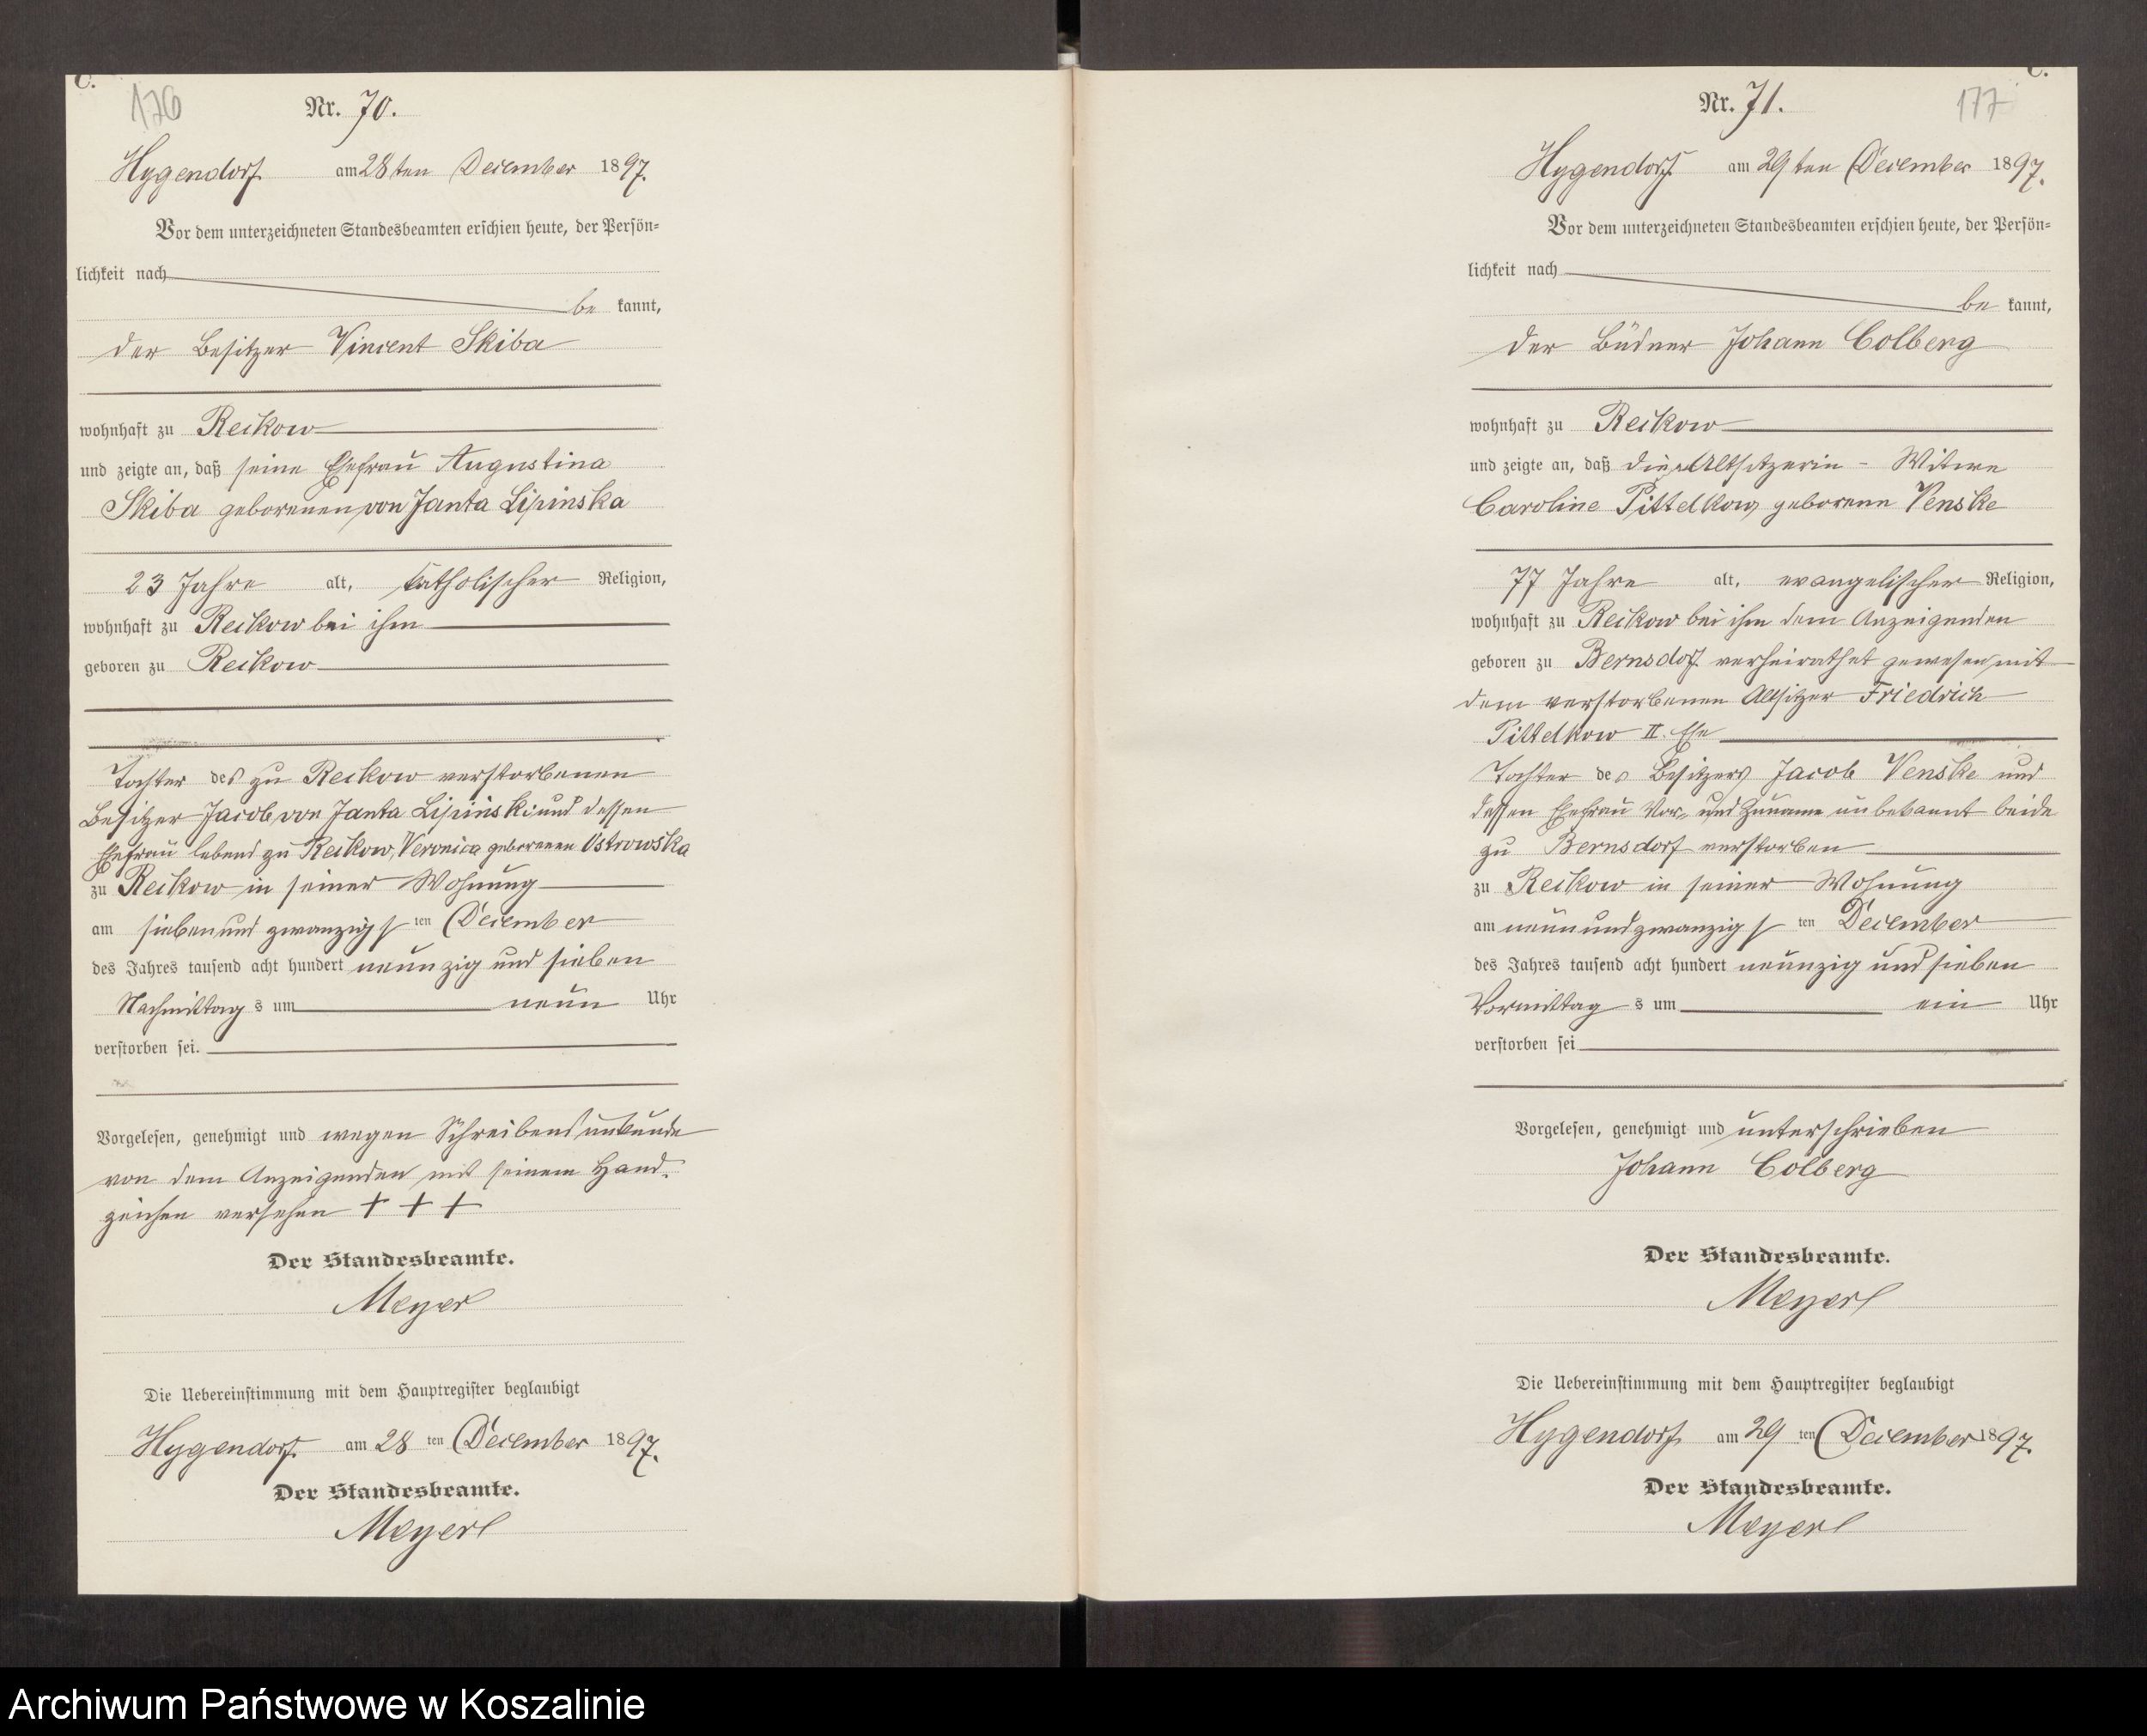 C.
176
Nr. 70.
Hygendorf am 28ten December 1897.
Vor dem unterzeichneten Standesbeamten erschien heute, der Persön-
lichkeit nach
be kannt,
der Besitzer Vincent Skiba
wohnhaft zu Reckow
und zeigte an, daß seine Ehefrau Augustina
Skiba geborenen von Janta Lipinska
23 Jahre alt, katholischer Religion,
wohnhaft zu Reckow bei ihm
geboren zu Reckow
Tochter des zu Reckow verstorbenen
Besitzer Jacob von Janta Lipinski und dessen
Ehefrau lebend zu Reckow, Veronica geborenen Ostrowska
zu Reckow in seiner Wohnung
am siebenundzwanzigsten December
des Jahres tausend acht hundert neunzig und sieben
Nachmittags um neun Uhr
verstorben sei.
Vorgelesen, genehmigt und wegen Schreibensunkunde
von dem Anzeigenden mit seinem Hand-
zeichen versehen + + +
Der Standesbeamte.
Meyer
Die Uebereinstimmung mit dem Hauptregister beglaubigt
Hygendorf am 28 ten December 1897.
Der Standesbeamte.
Meyer
C.
177
Nr. 71.
Hygendorf am 29ten December 1897.
Vor dem unterzeichneten Standesbeamten erschien heute, der Persön-
lichkeit nach
be kannt,
der Büdner Johann Colberg
wohnhaft zu Reckow
und zeigte an, daß die Altsitzerin - Witwe
Caroline Pittelkow geborene Venske
77 Jahre alt, evangelischer Religion,
wohnhaft zu Reckow bei ihm dem Anzeigenden
geboren zu Bernsdorf verheirathet gewesen mit
dem verstorbenen Altsitzer Friedrich
Pittelkow II. Ehe
Tochter des Besitzers Jacob Venske und
dessen Ehefrau Vor- und Zuname unbekannt beide
zu Bernsdorf verstorben
zu Reckow in seiner Wohnung
am neunundzwanzigsten December
des Jahres tausend acht hundert neunzig und sieben
Vormittags um ein Uhr
verstorben sei
Vorgelesen, genehmigt und unterschrieben
Johann Colberg
Der Standesbeamte.
Meyer
Die Uebereinstimmung mit dem Hauptregister beglaubigt
Hygendorf am 29 ten December 1897.
Der Standesbeamte.
Meyer
Archiwum Państwowe w Koszalinie